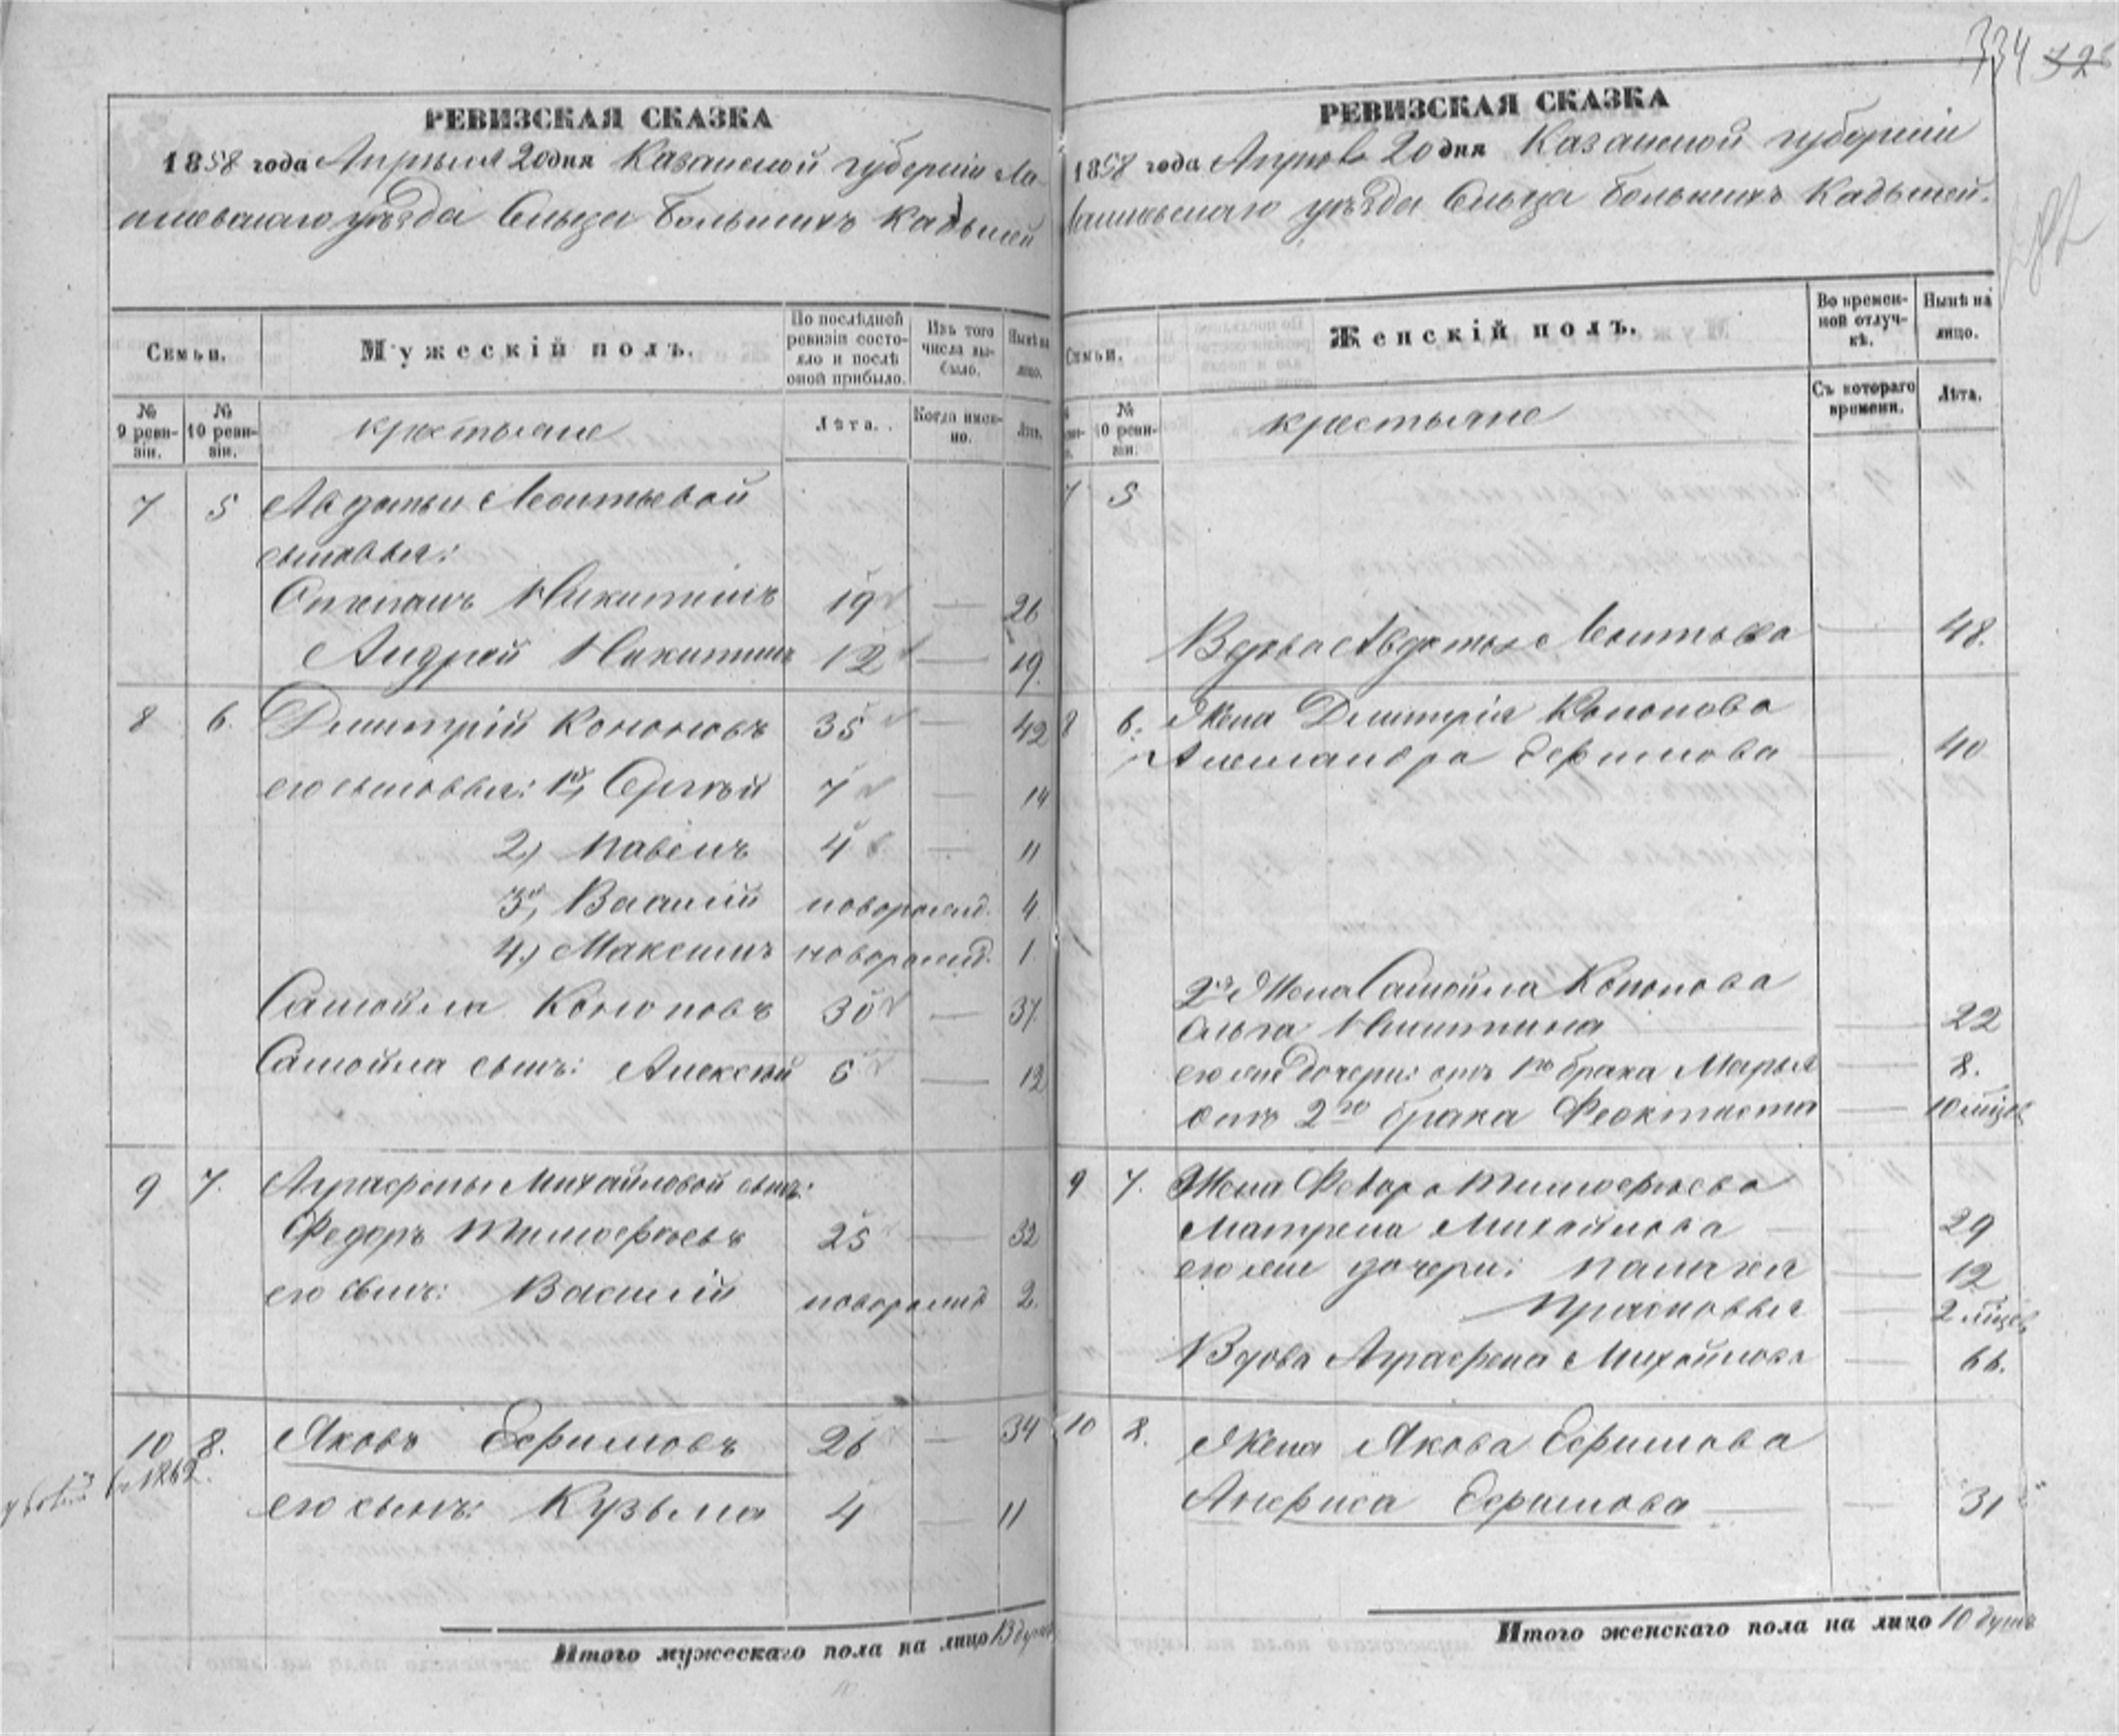 334 328
РЕВИЗСКАЯ СКАЗКА
1858 года Апрѣля 20 дня Казанской губерніи Ла-
ишевскаго уѣзда Сельца Большихъ Кадышей
Семьи.
Мужескій полъ.
По послѣдней ревизіи состояло и послѣ оной прибыло.
Изъ того числа выбыло.
Нынѣ на лицо.
№ 9 ревизіи.
№ 10 ревизіи.
крестьяне
Лѣта.
Когда именно.
Лѣта.
7 5 Авдотьи Леонтьевой
сыновья:
Степанъ Никитинъ 19 — 26
Андрей Никитинъ 12 — 19.
8 6. Дмитрій Кононовъ 35 — 42
его сыновья: 1й, Сергѣй 7 — 14
2) Павелъ 4 — 11
3й, Василій новорожд. 4.
4) Максимъ новорожд. 1.
Самойла Кононовъ 30 — 37.
Самойла сынъ: Алексѣй 6 — 12
9 7. Аграфены Михайловой сынъ:
Федоръ Тимофѣевъ 25 — 32
его сынъ: Василій новорожд 2.
10 8. Яковъ Ефимовъ 26 — 34
въ 1862.
его сынъ: Кузьма 4 — 11
Итого мужескаго пола на лицо 13 душъ
РЕВИЗСКАЯ СКАЗКА
1858 года Апрѣля 20 дня Казанской губерніи
Лаишевскаго уѣзда Сельца Большихъ Кадышей.
Семьи.
Женскій полъ.
Во временной отлучкѣ.
Нынѣ на лицо.
№ 10 ревизіи.
крестьяне
Съ котораго времени.
Лѣта.
7 5
Вдова Авдотья Леонтьева — 48.
8 6. Жена Дмитрія Кононова
Александра Ефимова — 40
2я Жена Самойла Кононова
Ольга Никитина — 22
его же дочери: отъ 1го брака Марья — 8.
отъ 2го брака Феоктиста — 10 мѣсяц
9 7. Жена Федора Тимофѣева
Матрена Михайлова — 29
его же дочери: Палагея — 12
Прасковья — 2 мѣсяц
Вдова Аграфена Михайлова — 66.
10 8. Жена Якова Ефимова
Анфиса Ефимова — 31
Итого женскаго пола на лицо 10 душъ